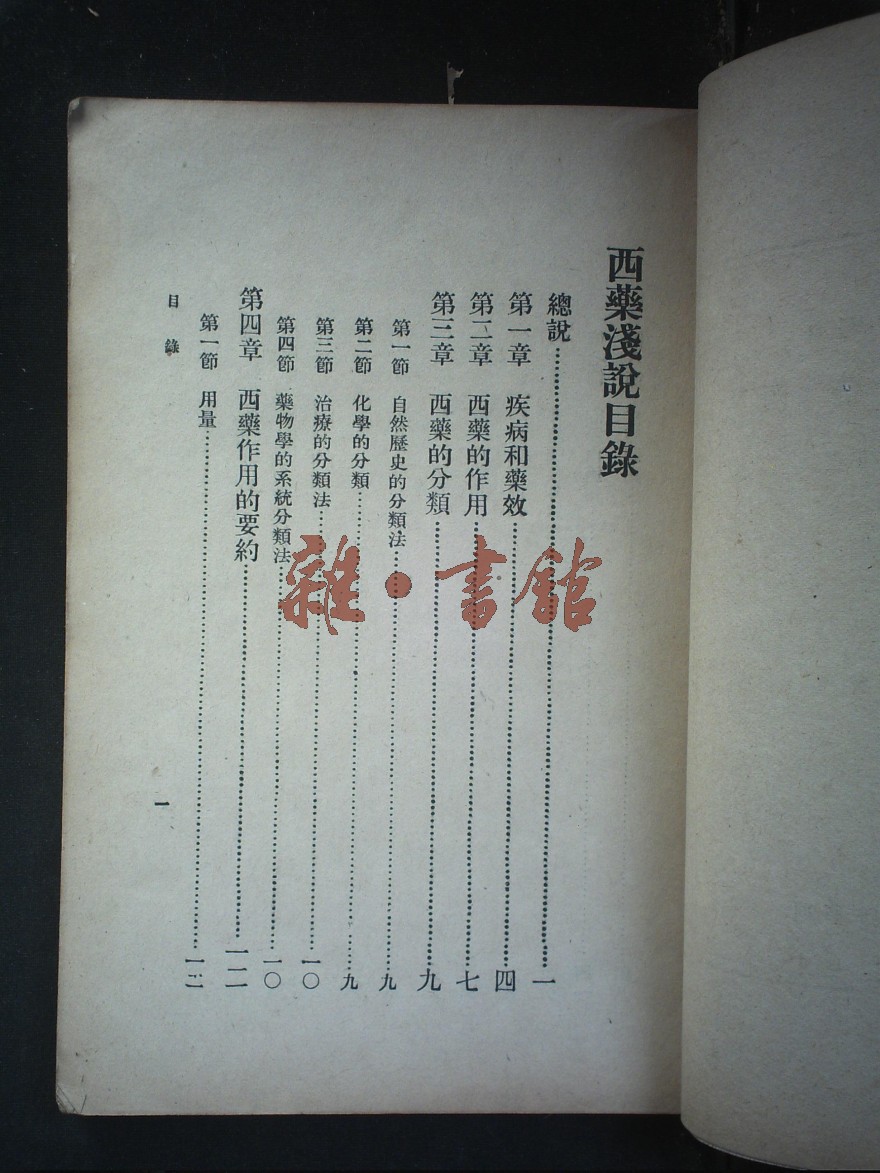 西藥淺說目錄
總說……一
第一章 疾病和藥效……四
第二章 西藥的作用……七
第三章 西藥的分類……九
第一節 自然歷史的分類法……九
第二節 化學的分類……九
第三節 治療的分類法……一〇
第四節 藥物學的系統分類法……一〇
第四章 西藥作用的要約……一二
第一節 用量……一二
目錄
一
雜·書館